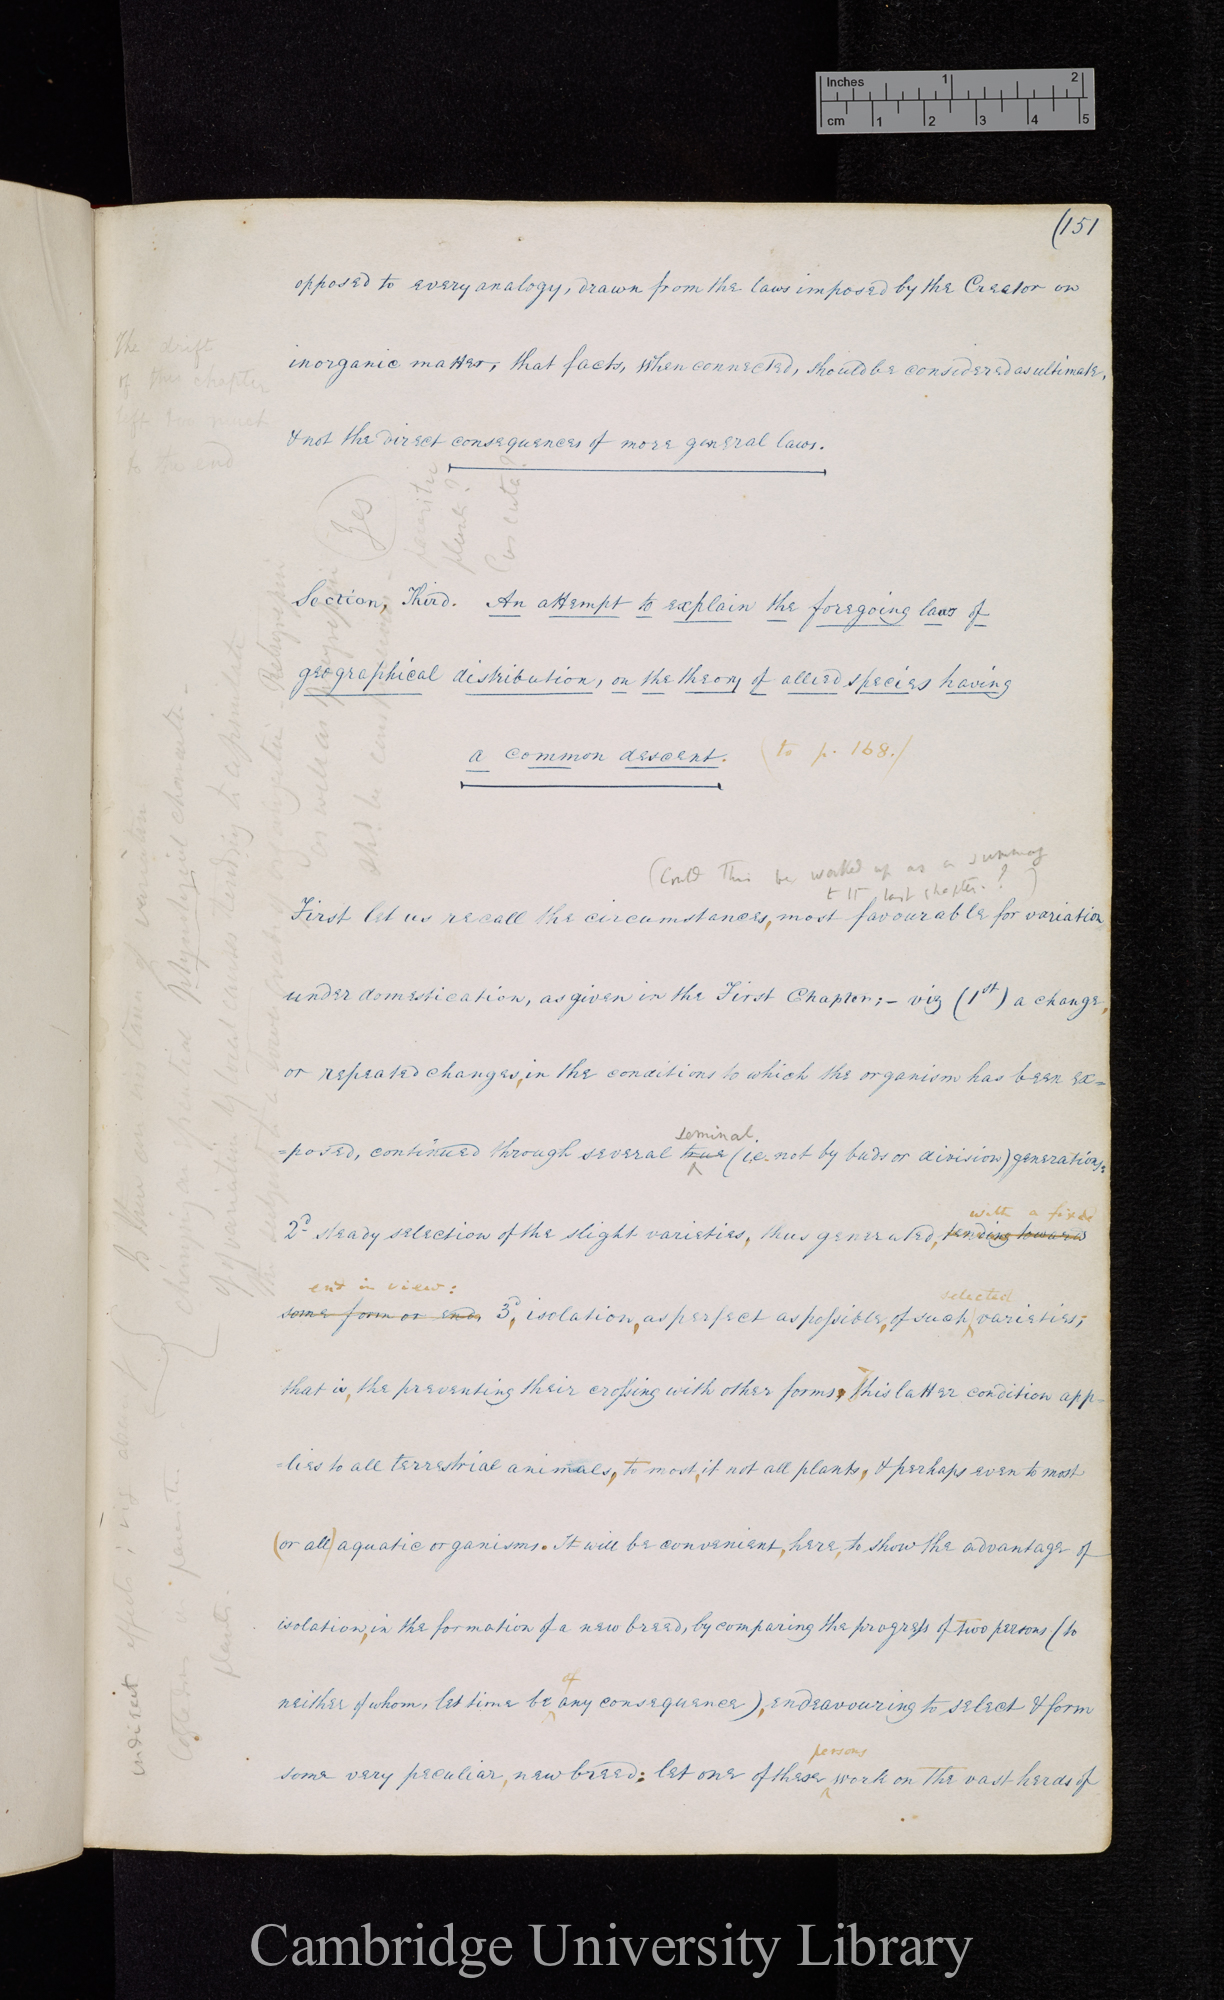 Inches 1 2
cm 1 2 3 4 5
(151
opposed to every analogy, drawn from the laws imposed by the Creator on
inorganic matter, that facts, when connected, should be considered as ultimate,
& not the direct consequences of more general laws.
The drift
of this chapter
to the end
(Yes)
plants?
Section, Third. An attempt to explain the foregoing laws of
geographical distribution, on the theory of allied species having
a common descent. (to p. 168.)
(Could this be worked up as a summary
to last chapter.?)
First let us recall the circumstances, most favourable for variation
under domestication, as given in the First Chapter;– viz (1st) a change,
or repeated changes, in the conditions to which the organism has been ex=
seminal
=posed, continued through several true (i.e. not by buds or division) generations:
with a fixed
2d steady selection of the slight varieties, thus generated, tending towards
end in view: selected
some form or end, 3d, isolation, as perfect as possible, of such varieties;
that is, the preventing their crossing with other forms; This latter condition app-
=lies to all terrestrial animals, to most, if not all plants, & perhaps even to most
(or all) aquatic organisms. It will be convenient, here, to show the advantage of
isolation, in the formation of a new breed, by comparing the progress of two persons (to
of
neither of whom, let time be any consequence), endeavouring to select & form
persons
some very peculiar, new breed: let one of these work on the vast herds of
indirect effects; viz
plants
Cambridge University Library